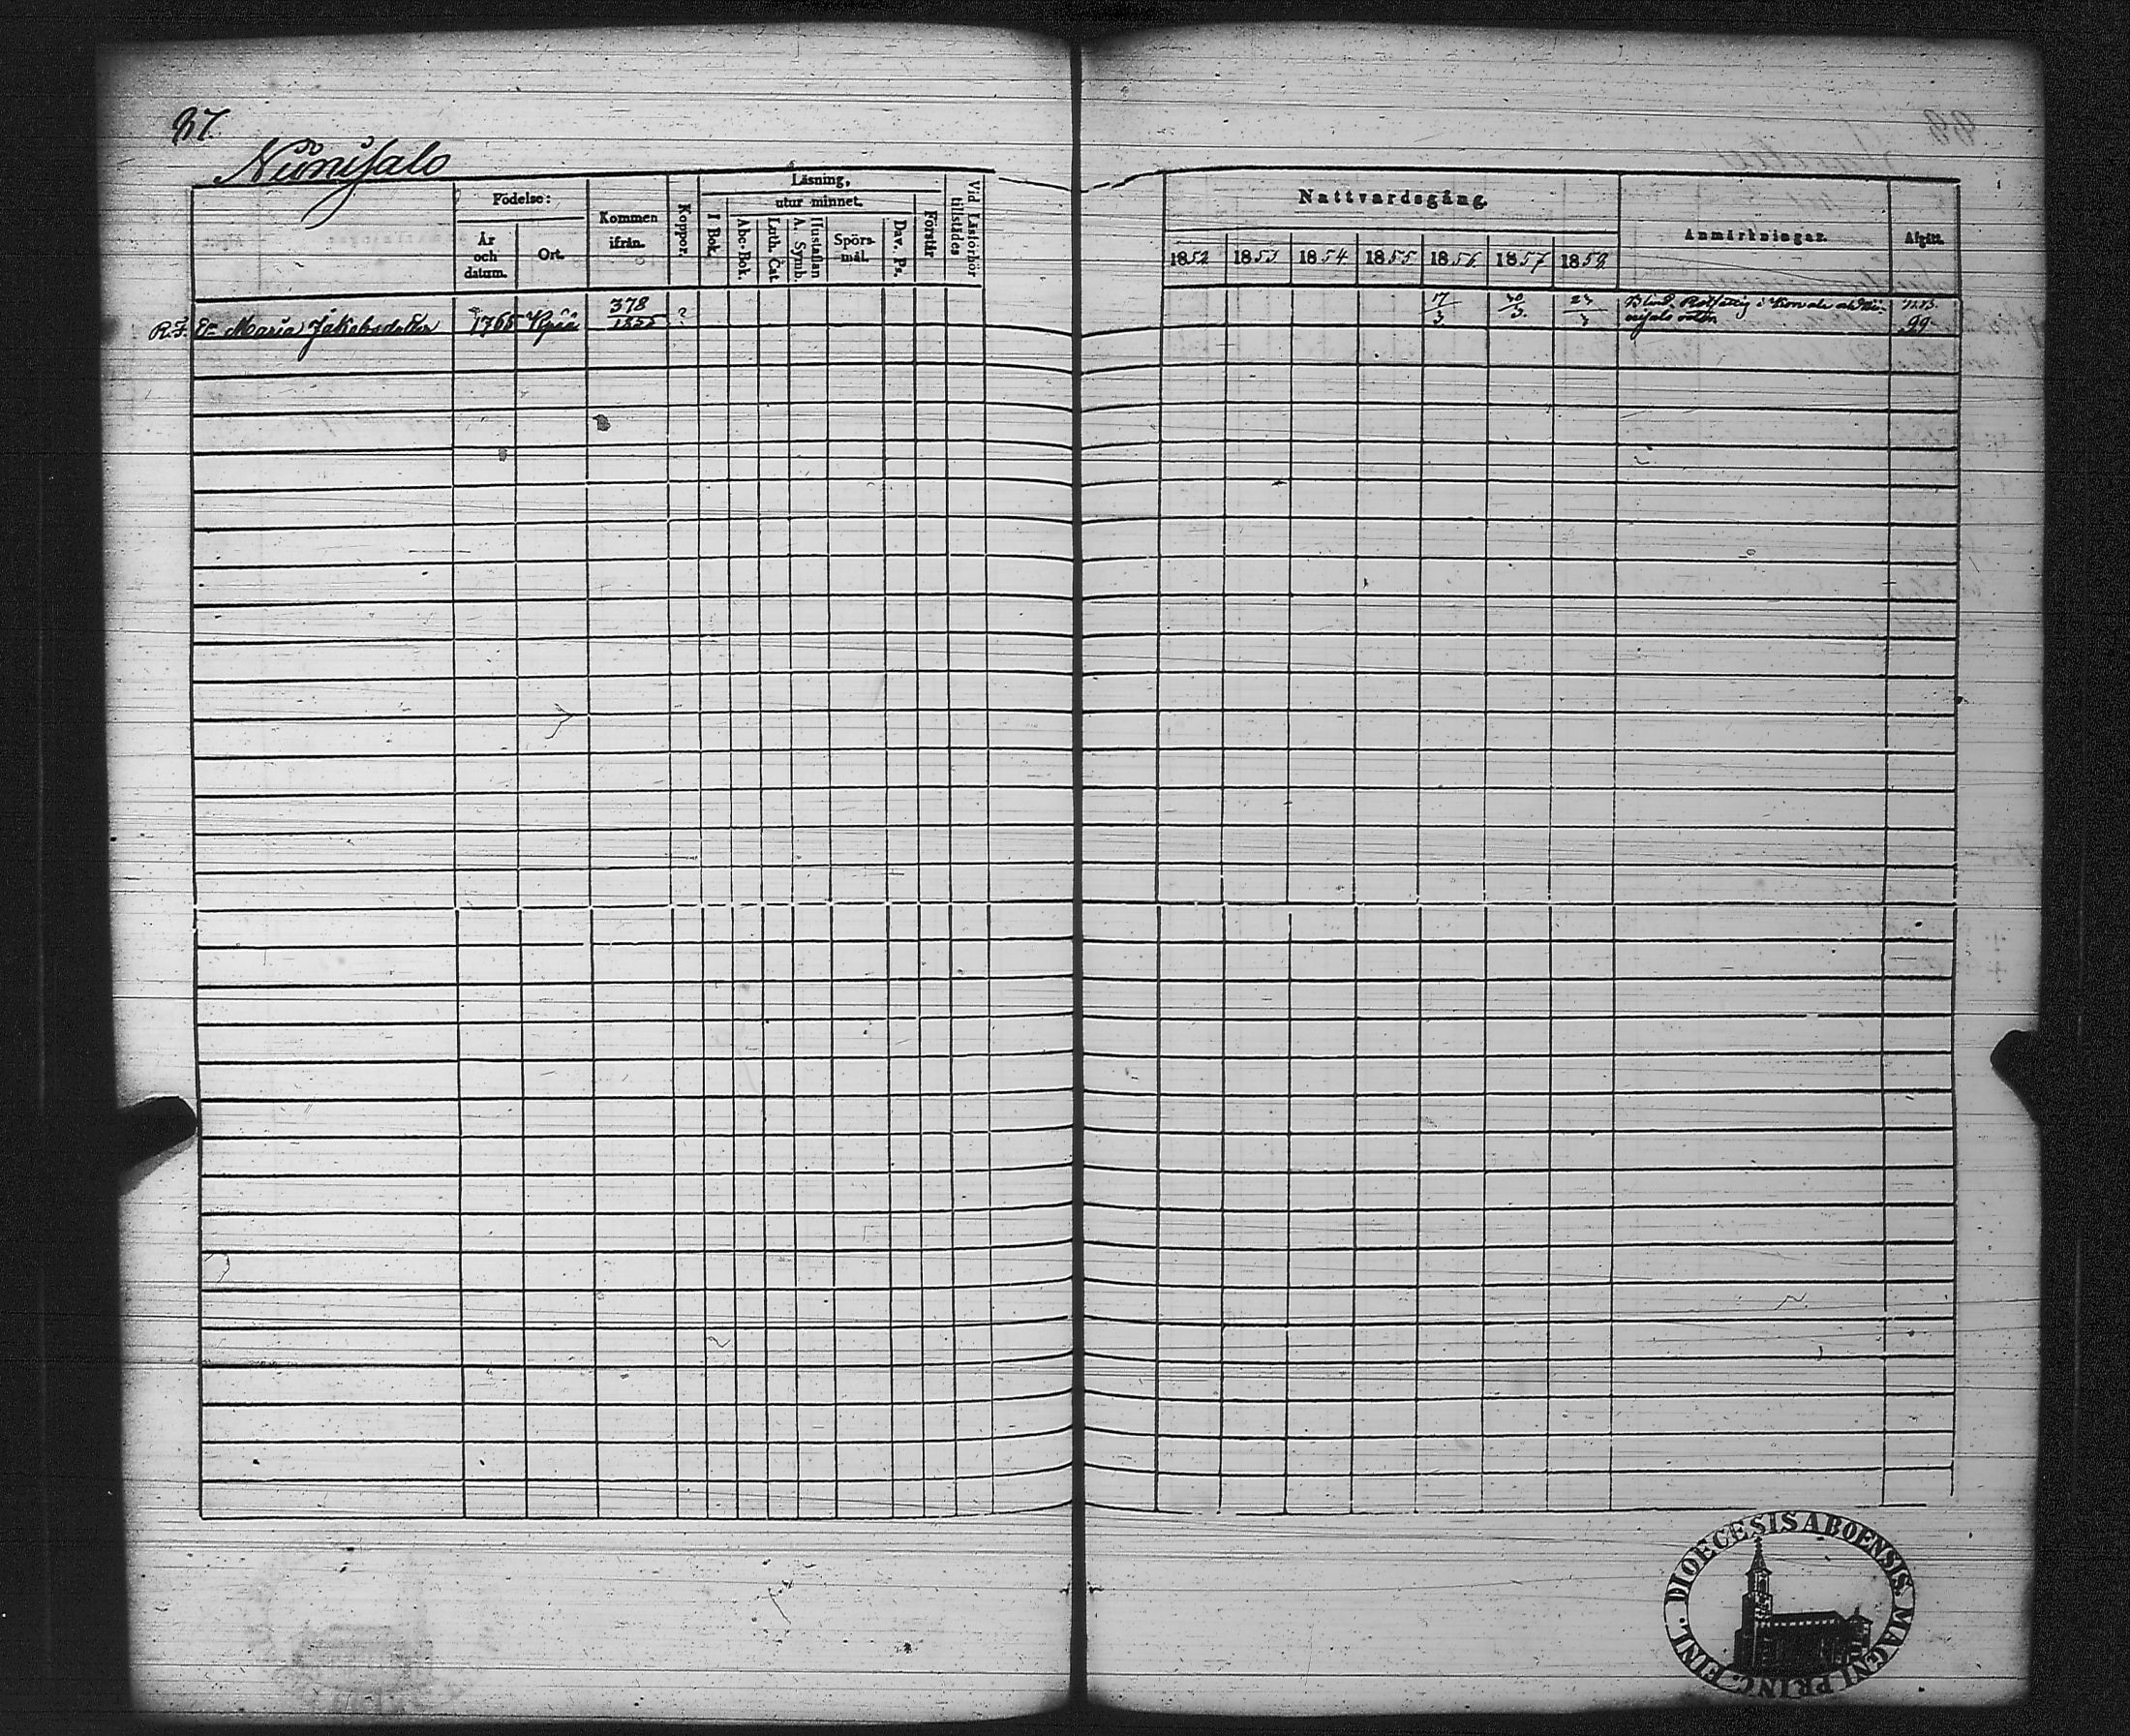 87.
Niinisalo
Födelse:
År och datum.
Ort.
Kommen ifrån.
Koppor.
Läsning,
utur minnet.
I Bok.
Abc-Bok.
Luth. Cat.
A. Symb. Hustaflan
Spörs- mål.
Dav. Ps.
Förstår
Vid Läsförhör tillstädes
Nattvardsgång.
1852 1853 1854 1855 1856 1857 1858
Anmärkningar.
Afgått.
R.F. E. Maria Jakobsdotter 1765 378/1855 ? 17/3 3 3 Blind. Rotfattig i
99
FINL. DIOECESIS ABOENSIS MAGNI PRINC.